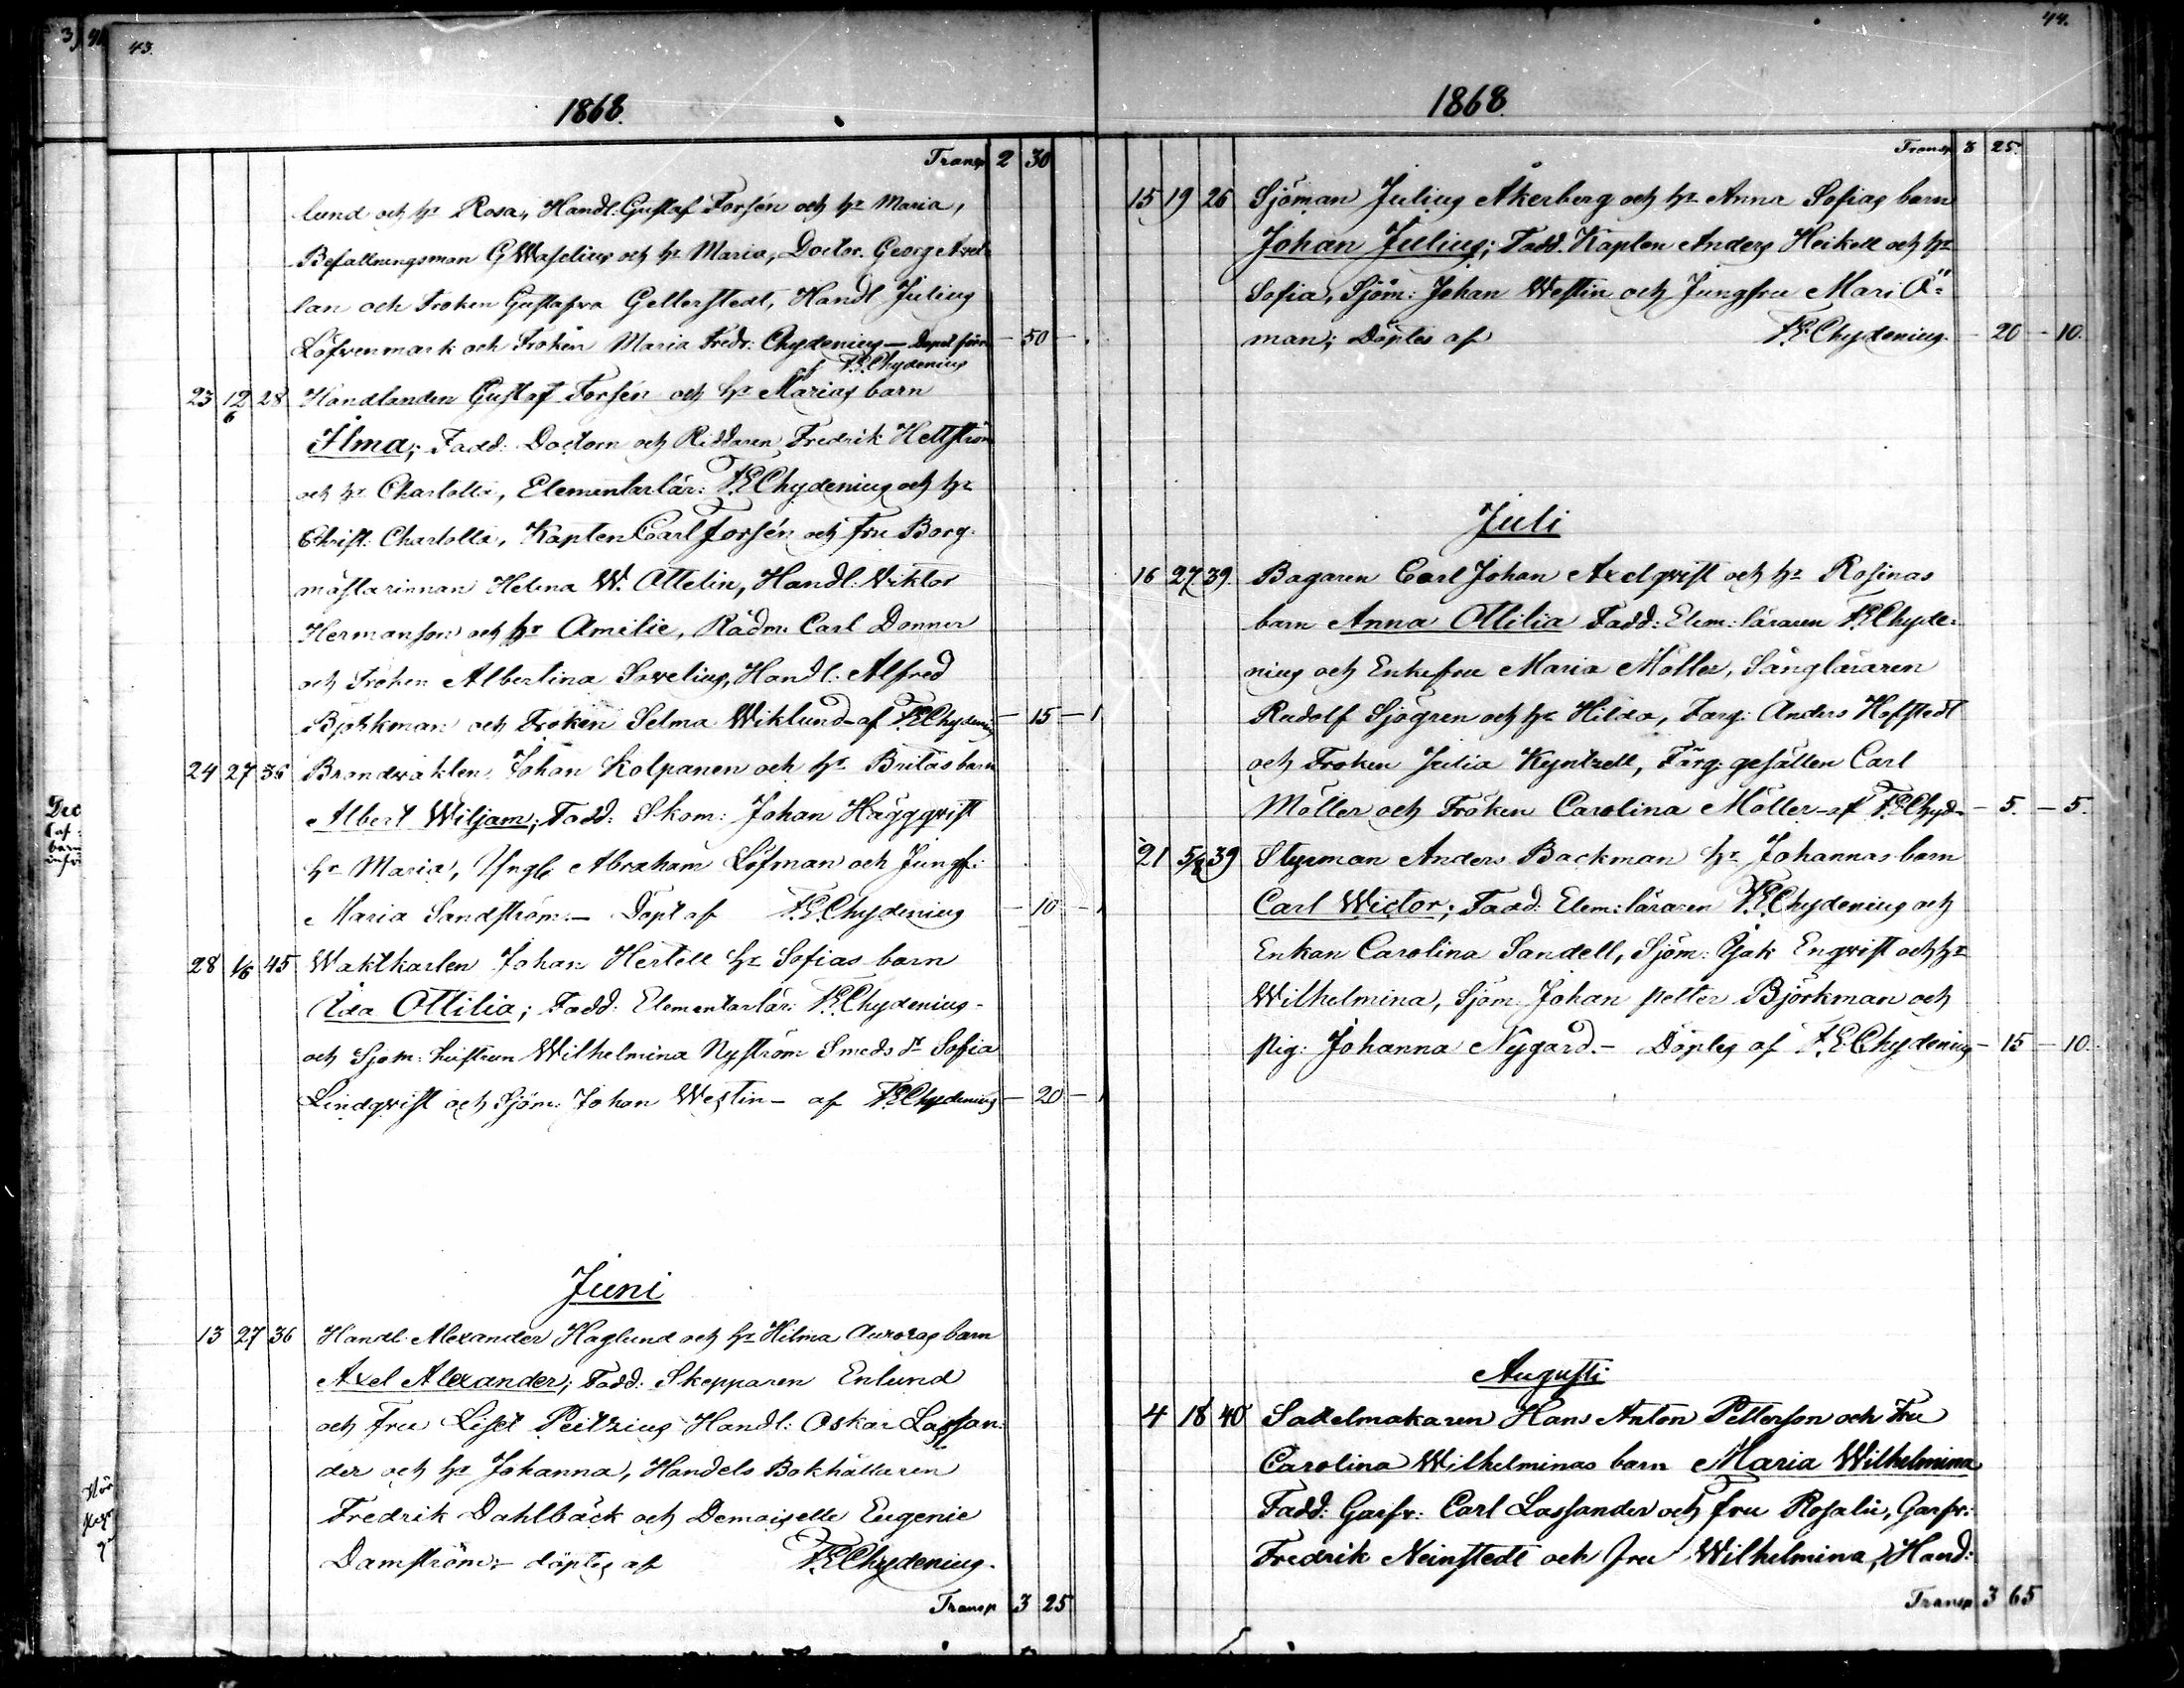 43.
1868.
Transp 2 30
lund och hr Rosa, Handl: Gustaf Forsén och hr Maria,
Befallningsman G Waselius och hr Maria, Doctor. Georg
lan och Fröken Gustafva Gellerstedt, Handl Julius
Löfvenmark och Fröken Maria Fredr: Chydenius — — 50 —
F.E.Chydenius
23 12/6 28 Handlanden Gustaf Forsén och hr Marias barn
Ilma; Fadd: Doctorn och Riddaren Fredrik Hellström
och hr Charlotta, Elementarlär: F.E.Chydenius och hr
Christ: Charlotta, Kapten Carl Forsén och Fru Borg-
mästarinnan Helena W. Ottelin, Handl: Viktor
Hermanson och hr Amilie, Rådm: Carl Donner
och Fröken Albertina Sovelius, Handl: Alfred
Björkman och Fröken Selma Wiklund - af F.E.Chydenius — 15 —
24 27 36 Brandvakten Johan Kolpanen och hr Britas barn
Albert Wiljam; Fadd: Skom: Johan Häggqvist
hr Maria, Yngl: Abraham Löfman och Jungf:
Maria Sandström. — Döpt af F.E.Chydenius — 10 —
28 1/6 45 Waktkarlen Johan Hertell hr Sofias barn
Ida Ottilia; Fadd: Elementarlär: F.E.Chydenius -
och Sjöm: hustrun Wilhelmina Nyström Smeds dr Sofia
Lindqvist och Sjöm: Johan Westin - af F.E.Chydenius — 20 —
Juni
13 27 36 Handl. Alexander Haglund och hr Hilma Auroras barn
Axel Alexander; Fadd: Skepparen Enlund
och Fru Liset Peitzius Handl: Oskar Lassan-
der och hr Johanna, Handels Bokhållaren
Fredrik Dahlbäck och Demoiselle Eugenie
Damström; - döptes af F.E.Chydenius.
Transp 3 25
44.
1868.
Transp 3 25.
15 19 26 Sjöman Julius Åkerberg och hr Anna Sofias barn
Johan Julius; Fadd. Kapten Anders Heikell och hr
Sofia, Sjöm: Johan Westin och Jungfru Mari Ö-
man; Döptes af F.E.Chydenius. — 20 — 10.
Juli
16 27 39. Bagaren Carl Johan Axelqvist och hr Rosinas
barn Anna Ottilia Fadd: Elem: läraren F.E.Chyde-
nius och Enkefru Maria Möller, Sångläraren
Rudolf Sjögren och hr Hilda, Färg: Anders Hofstedt
och Fröken Julia Kyntzell, Färg: gesällen Carl
Möller och Fröken Carolina Möller - af F.E.Chyd- — 5. — 5.
21 5/8 39 Styrman Anders Backman hr Johannas barn
Carl Wictor; Fadd: Elem: läraren F.E.Chydenius och
Enkan Carolina Sandell, Sjöm: Isak Enqvist och hr
Wilhelmina, Sjöm: Johan Petter Björkman och
Pig: Johanna Nygård. — Döptes af F.E.Chydenius — 15 — 10.
Augusti
4 18 40 Sadelmakaren Hans Anton Petterson och Fru
Carolina Wilhelminas barn Maria Wilhelmina
Fadd: Garfv: Carl Lassander och Fru Rosalie, Garfv:
Fredrik Neinstedt och Fru Wilhelmina, Hand:
Transp 3 65